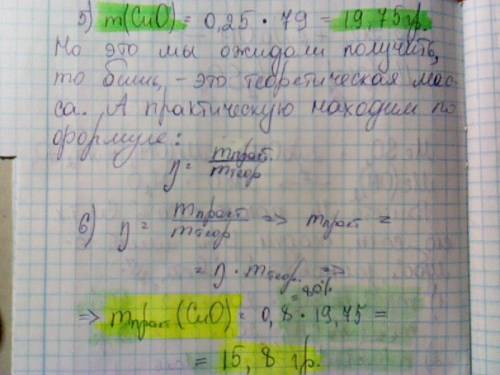 5) m(CuO) = 0,25 · 79 = 19,75 гр.
Но это мы ожидали получить,
то бишь, - это теоретическая мас-
са. А практическую находим по
формуле:
η = mпракт. / mтеор
6) η = mпракт / mтеор => mпракт =
= η · mтеор. =>
=80%
=> mпракт (CuO) = 0,8 · 19,75 =
= 15,8 гр.